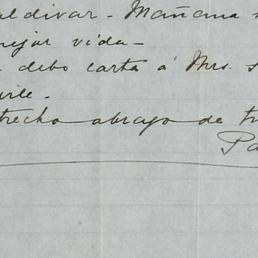 aldivar - Mañana
mejor vida -
debo carta á Mrs.
trecho abrazo de
Pa